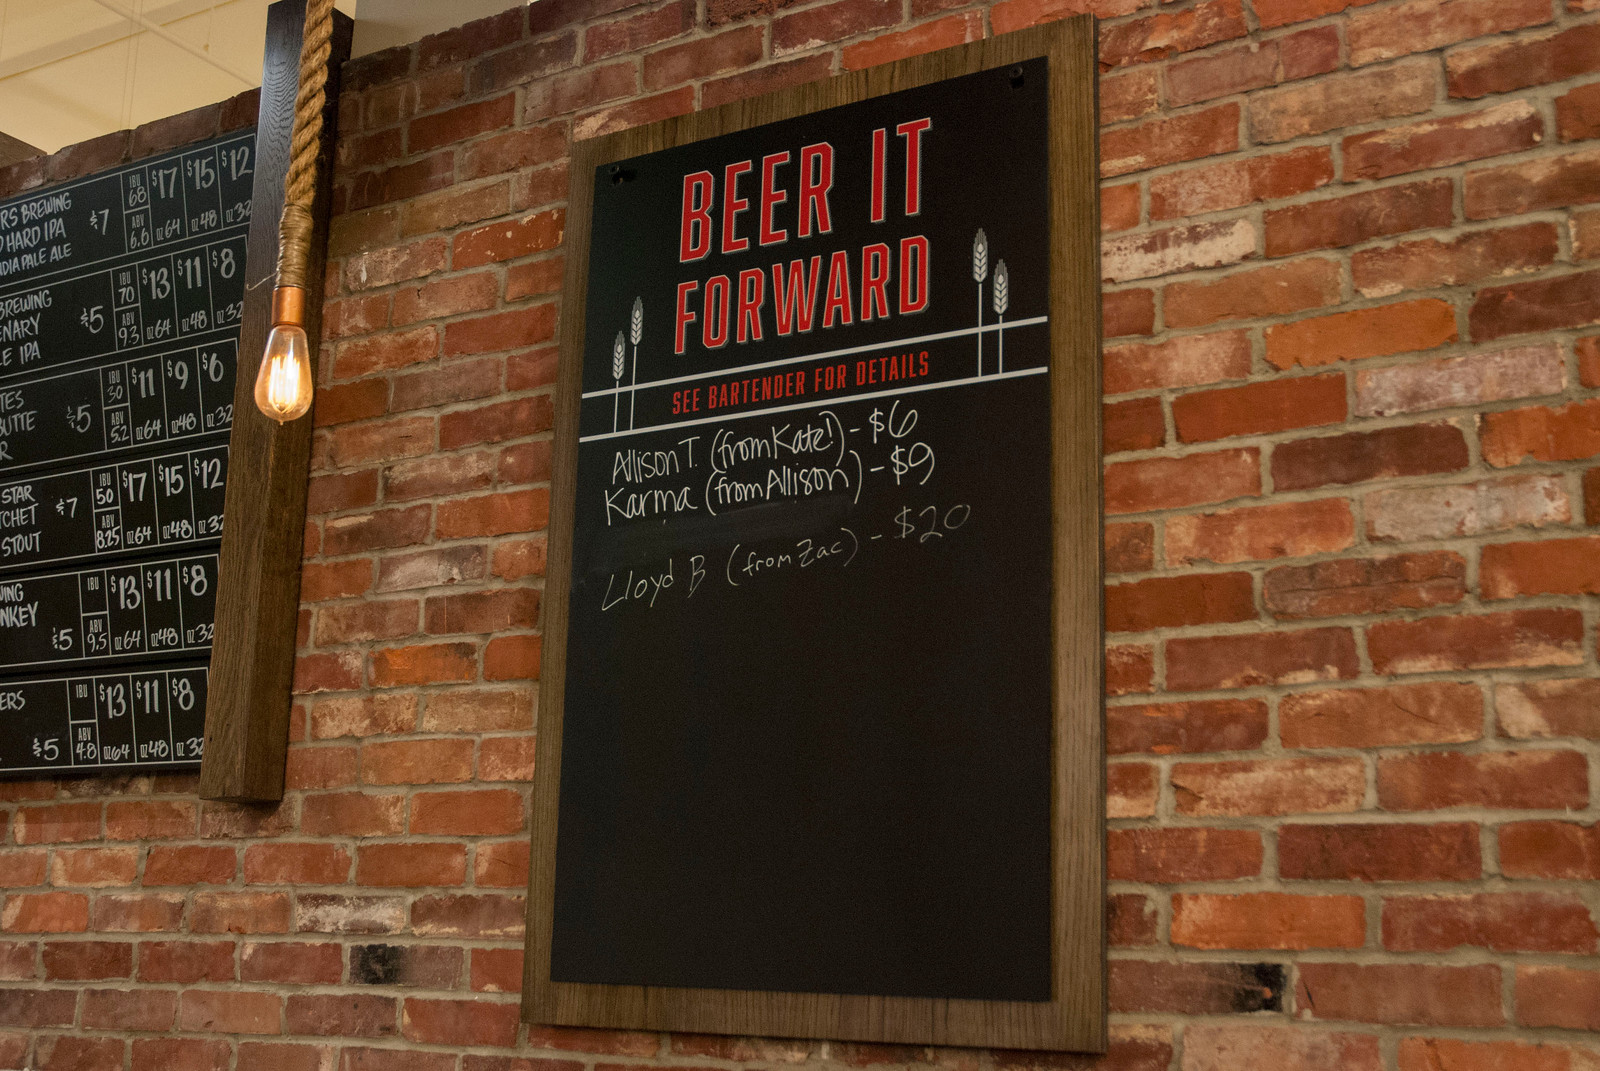 RS BREWING
HARD IPA
INDIA PALE ALE
$7
IBU 68
ABV 6.6
$17 $15 $12
oz 64 oz 48 oz 32
BREWING
ENARY
E IPA
$5
IBU 70
ABV 9.3
$13 $11 $8
oz 64 oz 48 oz 32
TES
BUTTE
R
$5
IBU 30
ABV 5.2
$11 $9 $6
oz 64 oz 48 oz 32
STAR
TCHET
STOUT
$7
IBU 50
ABV 8.25
$17 $15 $12
oz 64 oz 48 oz 32
ING
NKEY
$5
IBU
ABV 9.5
$13 $11 $8
oz 64 oz 48 oz 32
ERS
$5
IBU
ABV 4.8
$13 $11 $8
oz 64 oz 48 oz 32
BEER IT
FORWARD
SEE BARTENDER FOR DETAILS
Allison T. (from Kate!) - $6
Karma (from Allison) - $9
Lloyd B (from Zac) - $20